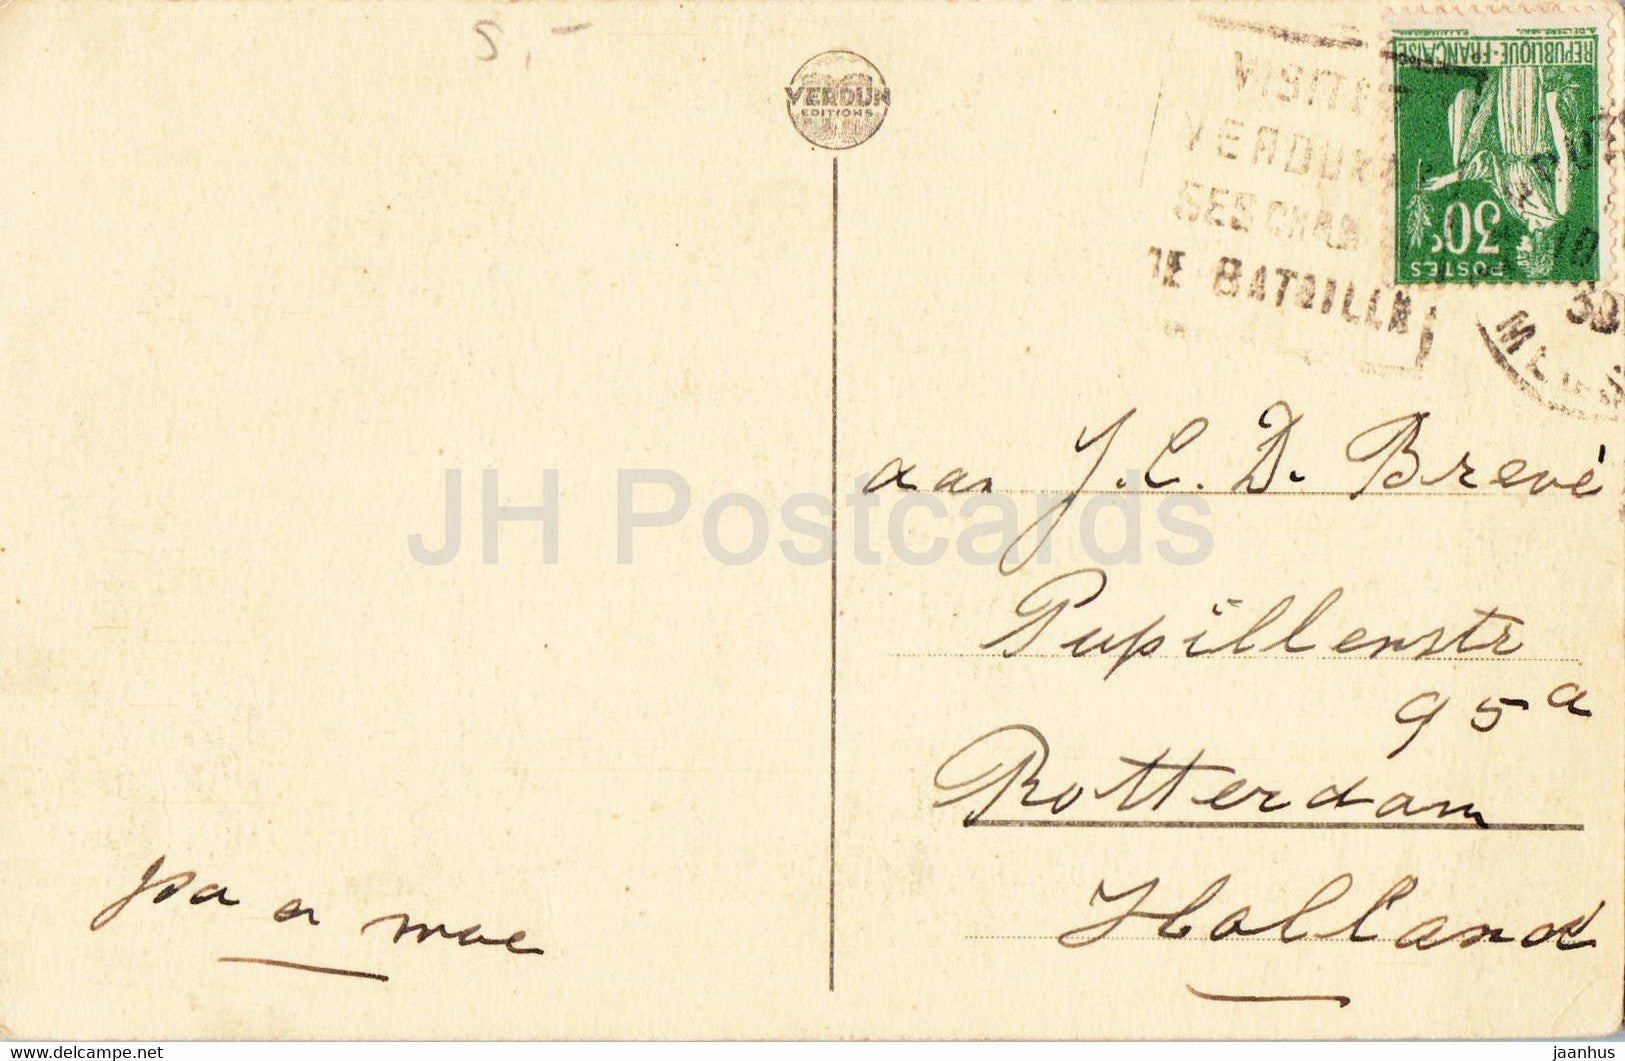 5,-
VERDUN
EDITIONS
VISITEZ
VERDUN ET
SES CHAM
DE BATAILLE
REPUBLIQUE-FRANÇAISE
30c
POSTES
aan J.C.D. Brevé
Pupillenstr
95a
Rotterdam
Holland
pa en moe
JH Postcards
delcampe.net
jaanhus